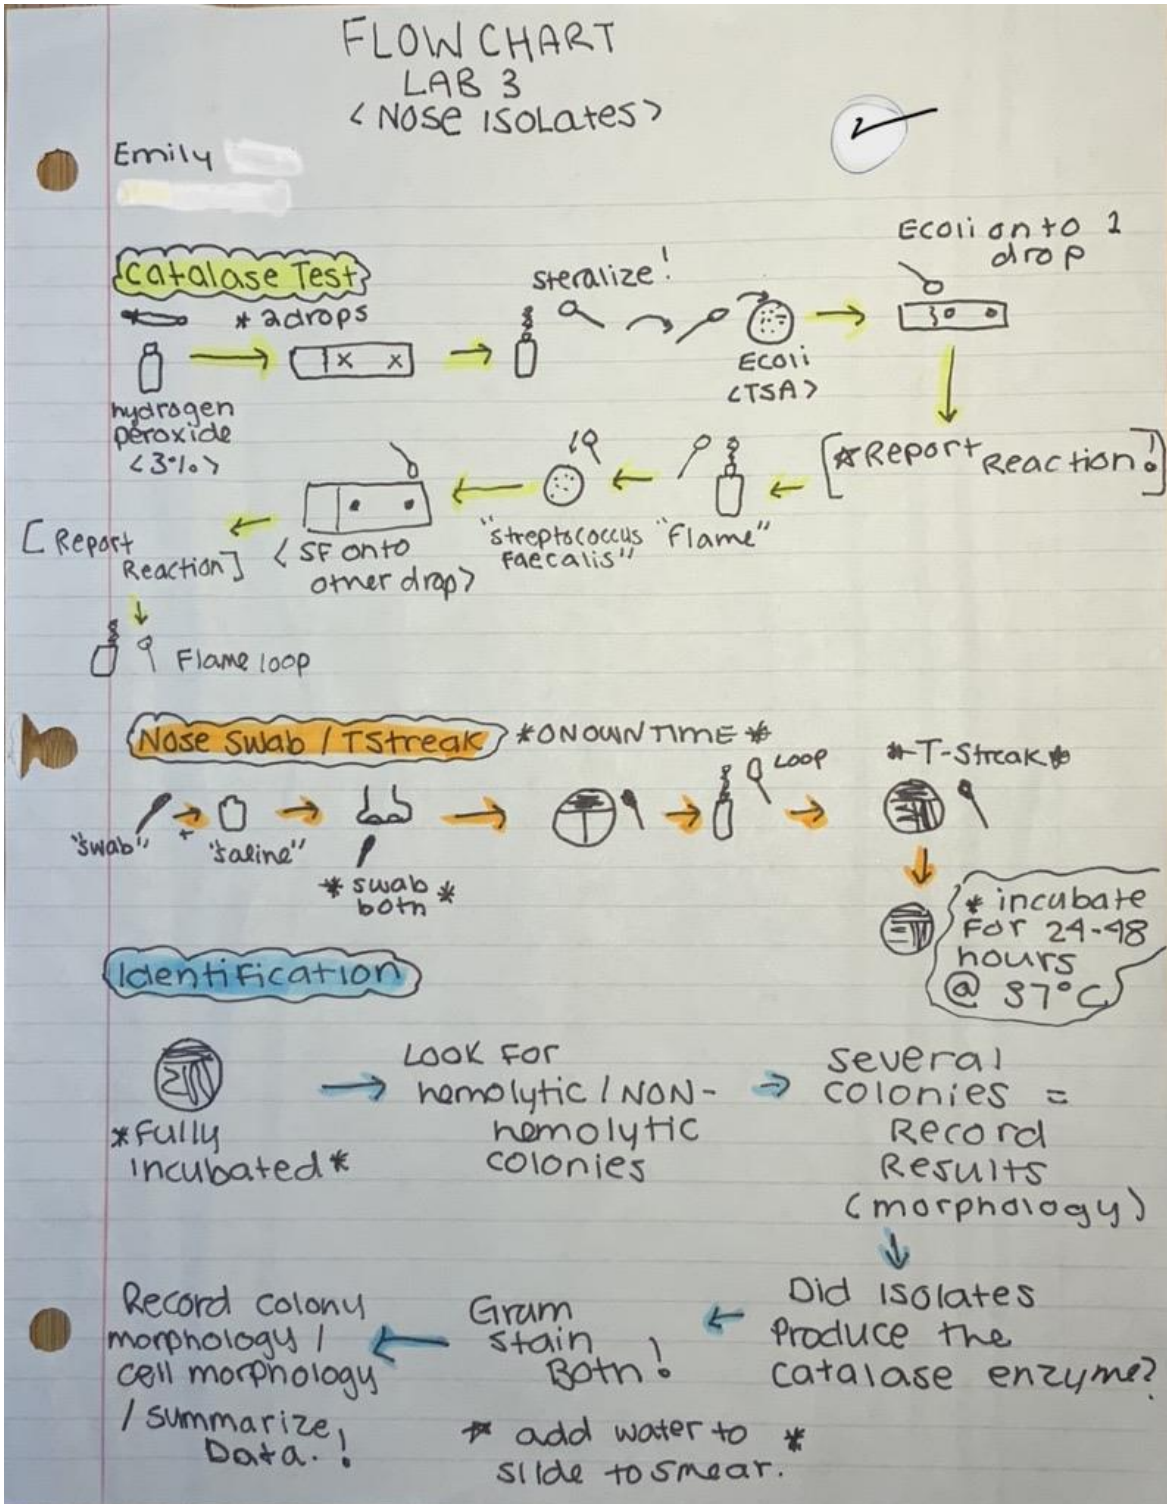 FLOW CHART
LAB 3
<NOSE ISOLATES>
Emily
Catalase Test
* 2drops
hydrogen
peroxide
<3%>
x x
steralize!
Ecoli
<TSA>
Ecoli onto 1
drop
[☆Report Reaction!]
"Flame"
"streptococcus
faecalis"
<SF onto
other drop>
[Report
Reaction]
Flame loop
Nose Swab / TStreak *ON OWN TIME*
"swab"
+
"saline"
* swab *
both
LOOP
*T-Streak*
* incubate
for 24-48
hours
@ 37°C
Identification
*Fully
incubated*
LOOK FOR
hemolytic / NON-
hemolytic
colonies
several
colonies =
Record
Results
(morphology)
Did isolates
Produce the
catalase enzyme?
Gram
Stain
Both!
☆ add water to *
slide to smear.
Record colony
morphology /
cell morphology
/ summarize
Data.!